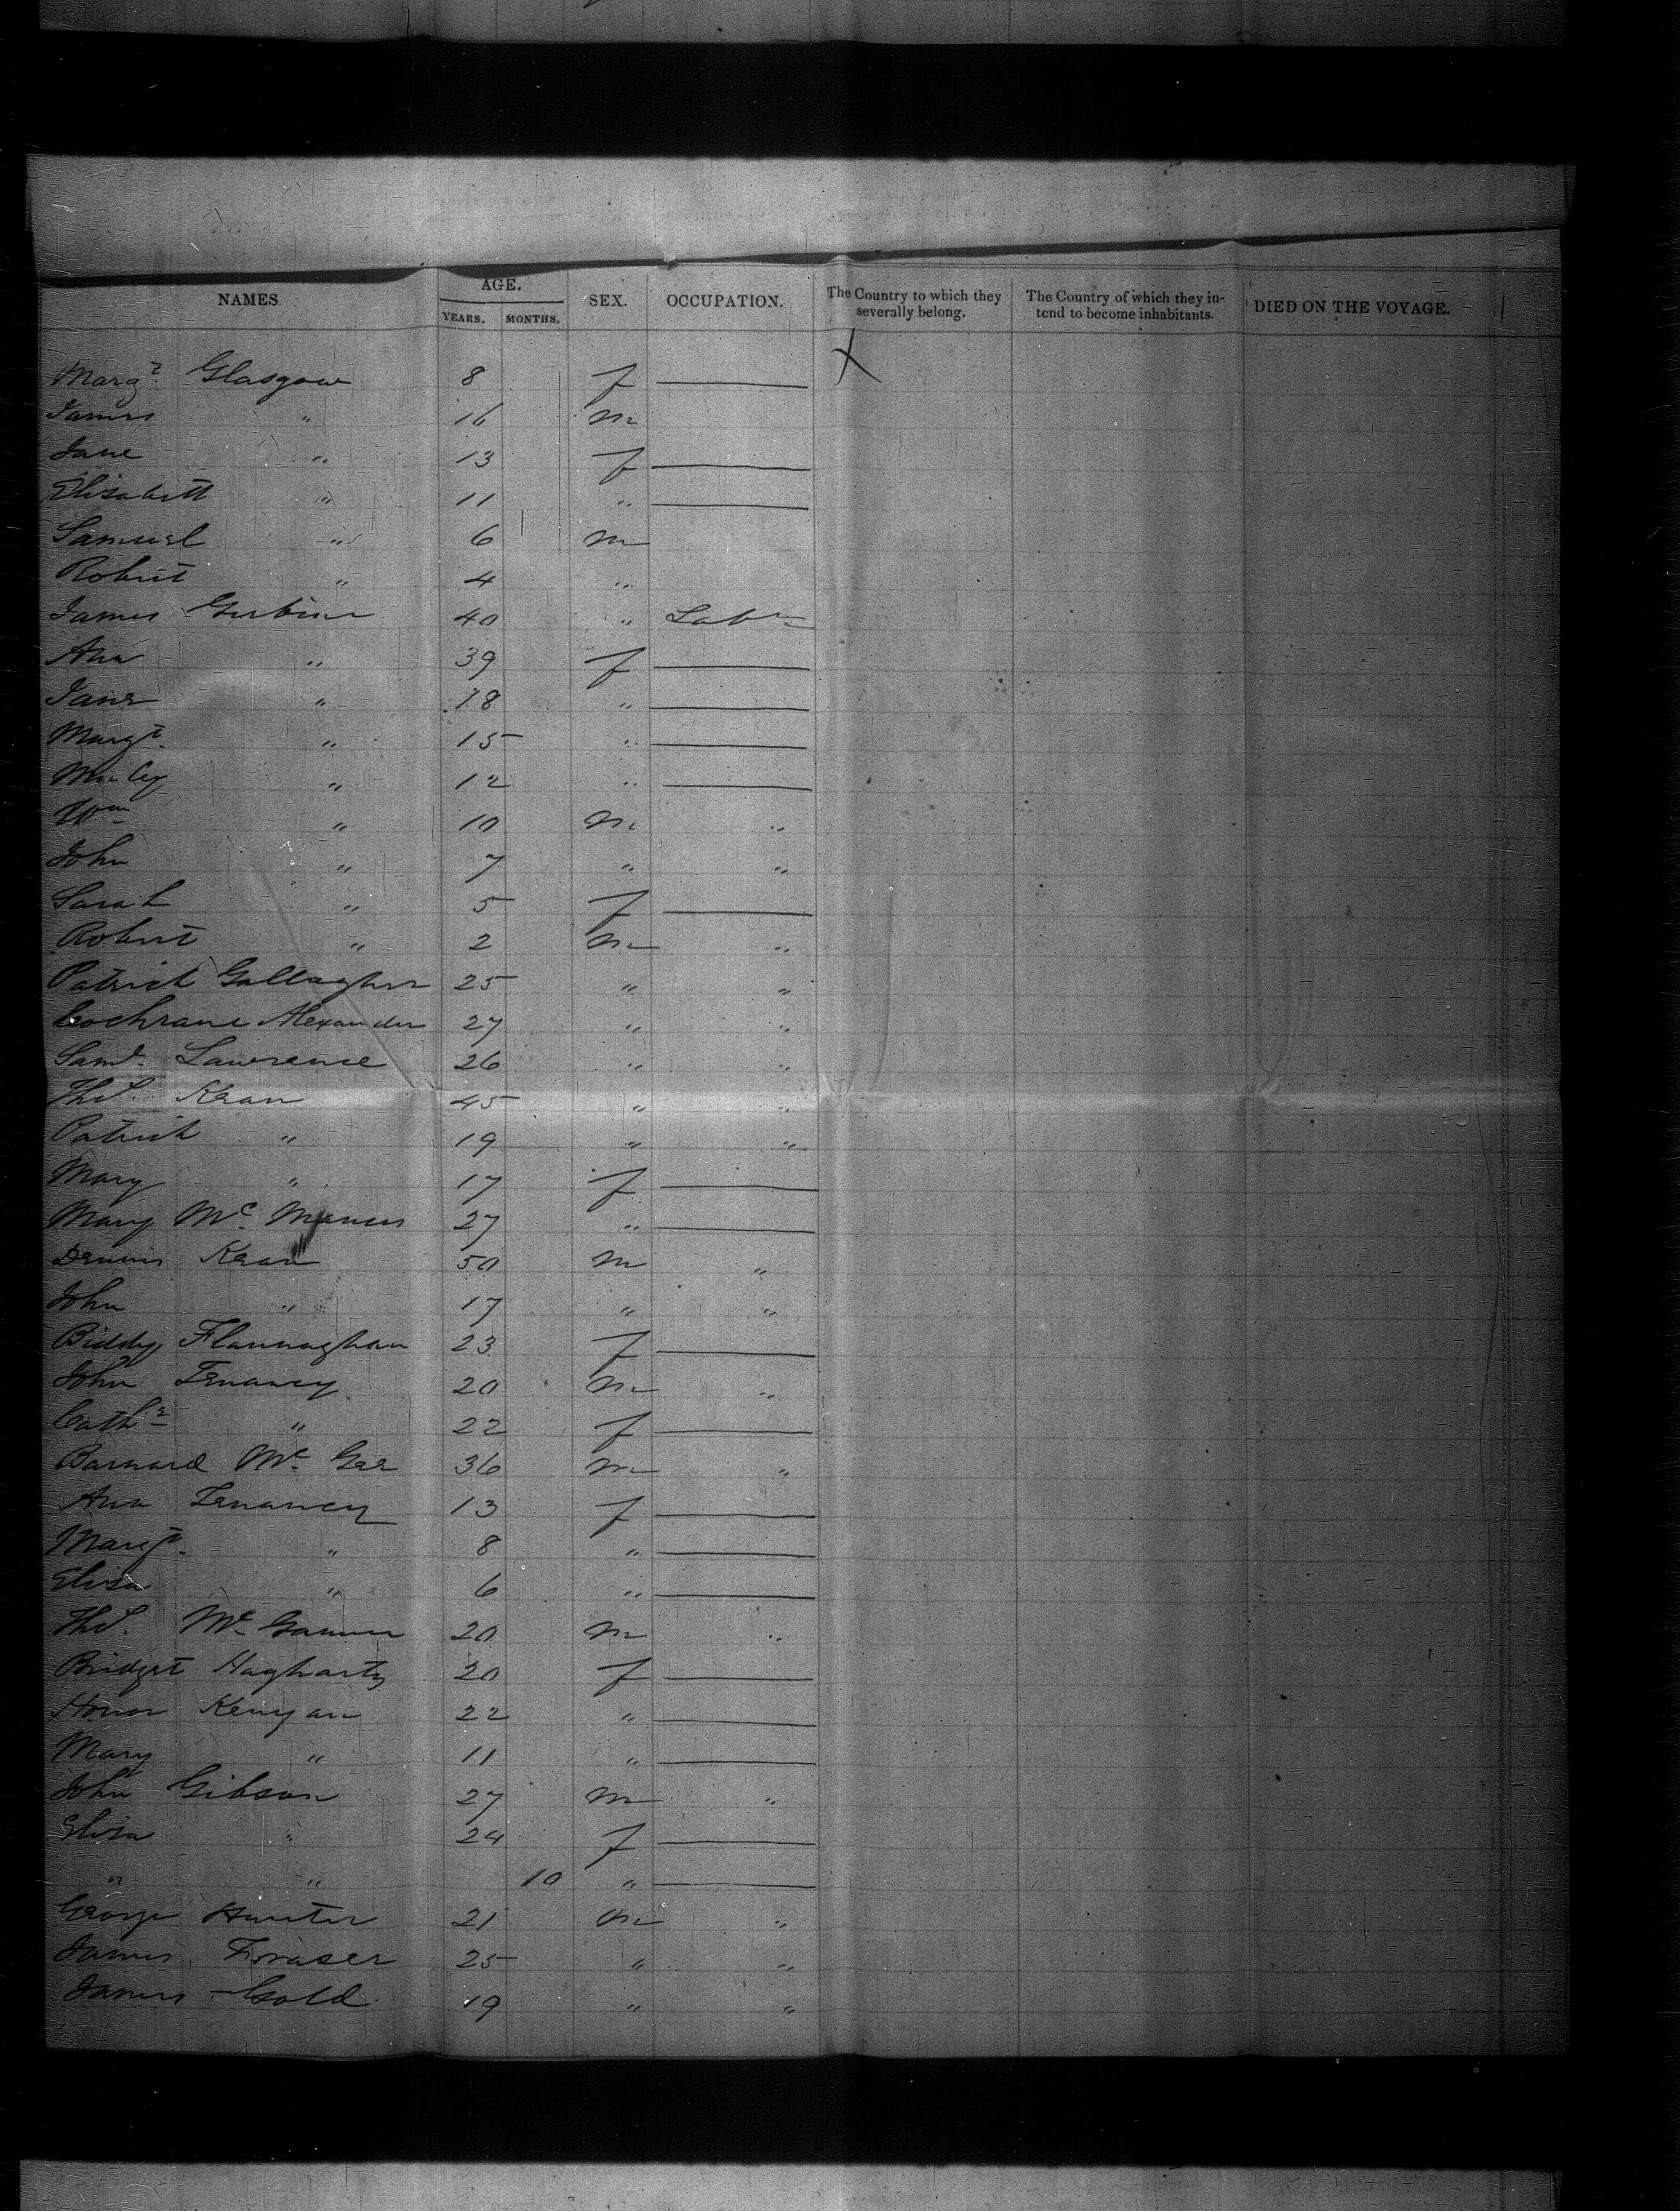 NAMES. AGE. SEX. OCCUPATION. The Country to which they severally belong. The Country of which they intend to become inhabitants. DIED ON THE VOYAGE.
YEARS. MONTHS.
Margt. Glasgow 8 f —— X
James " 16 m
Jane " 13 f ——
Elisabeth " 11 " ——
Samuel " 6 m
Robert " 4 "
James 40 " Labr
Ann " 39 f ——
Jane " 18 " ——
Margt. " 15 " ——
" 12 " ——
Wm " 10 m "
John " 7 " "
Sarah " 5 f ——
Robert " 2 m "
Patrick Gallagher 25 " "
Cochrane Alexander 27 " "
Saml. Lawrence 26 " "
Thos. Kean 45 " "
Patrick " 19 " "
Mary " 17 f ——
Mary Mc. Manus 27 " ——
Dennis Kean 50 m "
John " 17 " "
Biddy Flannaghan 23 f ——
John Tenancy 20 m "
Cathe " 22 f ——
Barnard Mc. Gee 36 m "
Ann Tenancy 13 f ——
Margt. " 8 " ——
Eliza " 6 " ——
Thos. Mc. 20 m "
Bridget Hagharty 20 f ——
Honor Kenyan 22 " ——
Mary " 11 " ——
John Gibson 27 m "
Eliza " 24 f ——
" " 10 " ——
George Hunter 21 m "
James Fraser 25 " "
James Gold 19 " "